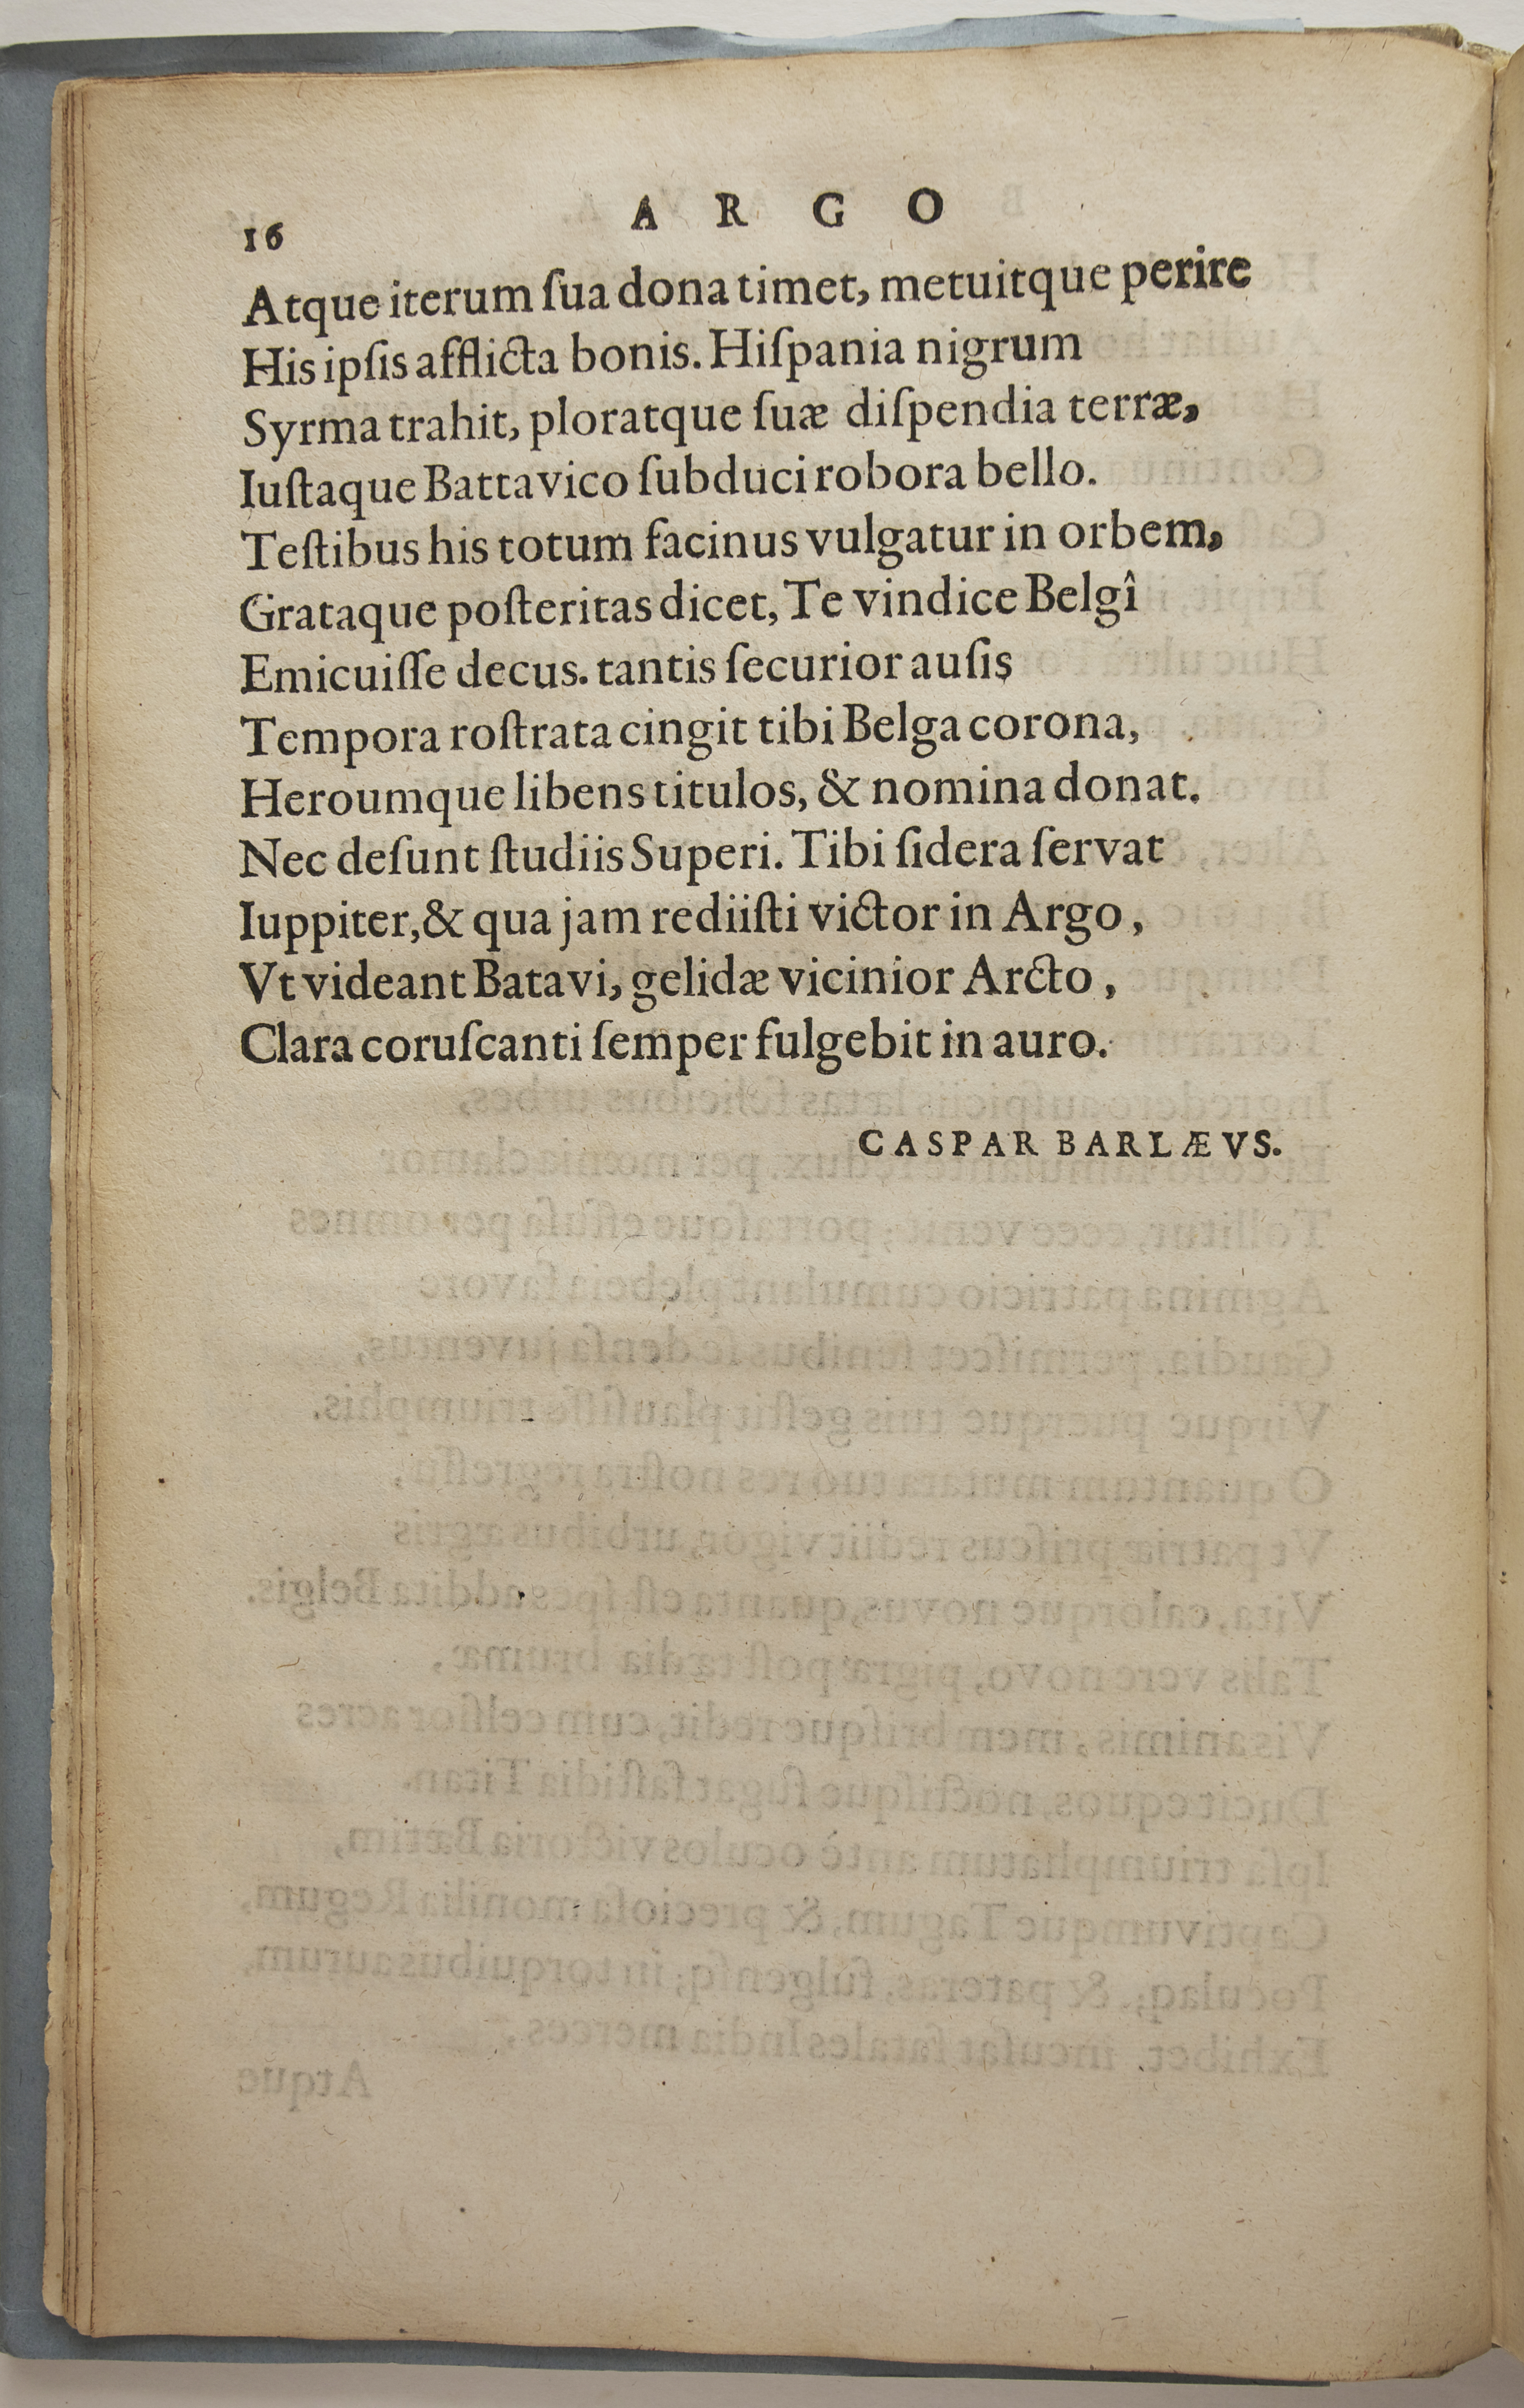 16 ARGO
Atque iterum ſua dona timet, metuitque perire
His ipſis afflicta bonis. Hiſpania nigrum
Syrma trahit, ploratque ſuæ diſpendia terræ,
Iuſtaque Battavico ſubduci robora bello.
Teſtibus his totum facinus vulgatur in orbem,
Grataque poſteritas dicet, Te vindice Belgî
Emicuiſſe decus. tantis ſecurior auſis
Tempora roſtrata cingit tibi Belga corona,
Heroumque libens titulos, & nomina donat.
Nec deſunt ſtudiis Superi. Tibi ſidera ſervat
Iuppiter, & qua jam rediiſti victor in Argo,
Vt videant Batavi, gelidæ vicinior Arcto,
Clara coruſcanti ſemper fulgebit in auro.
CASPAR BARLÆVS.